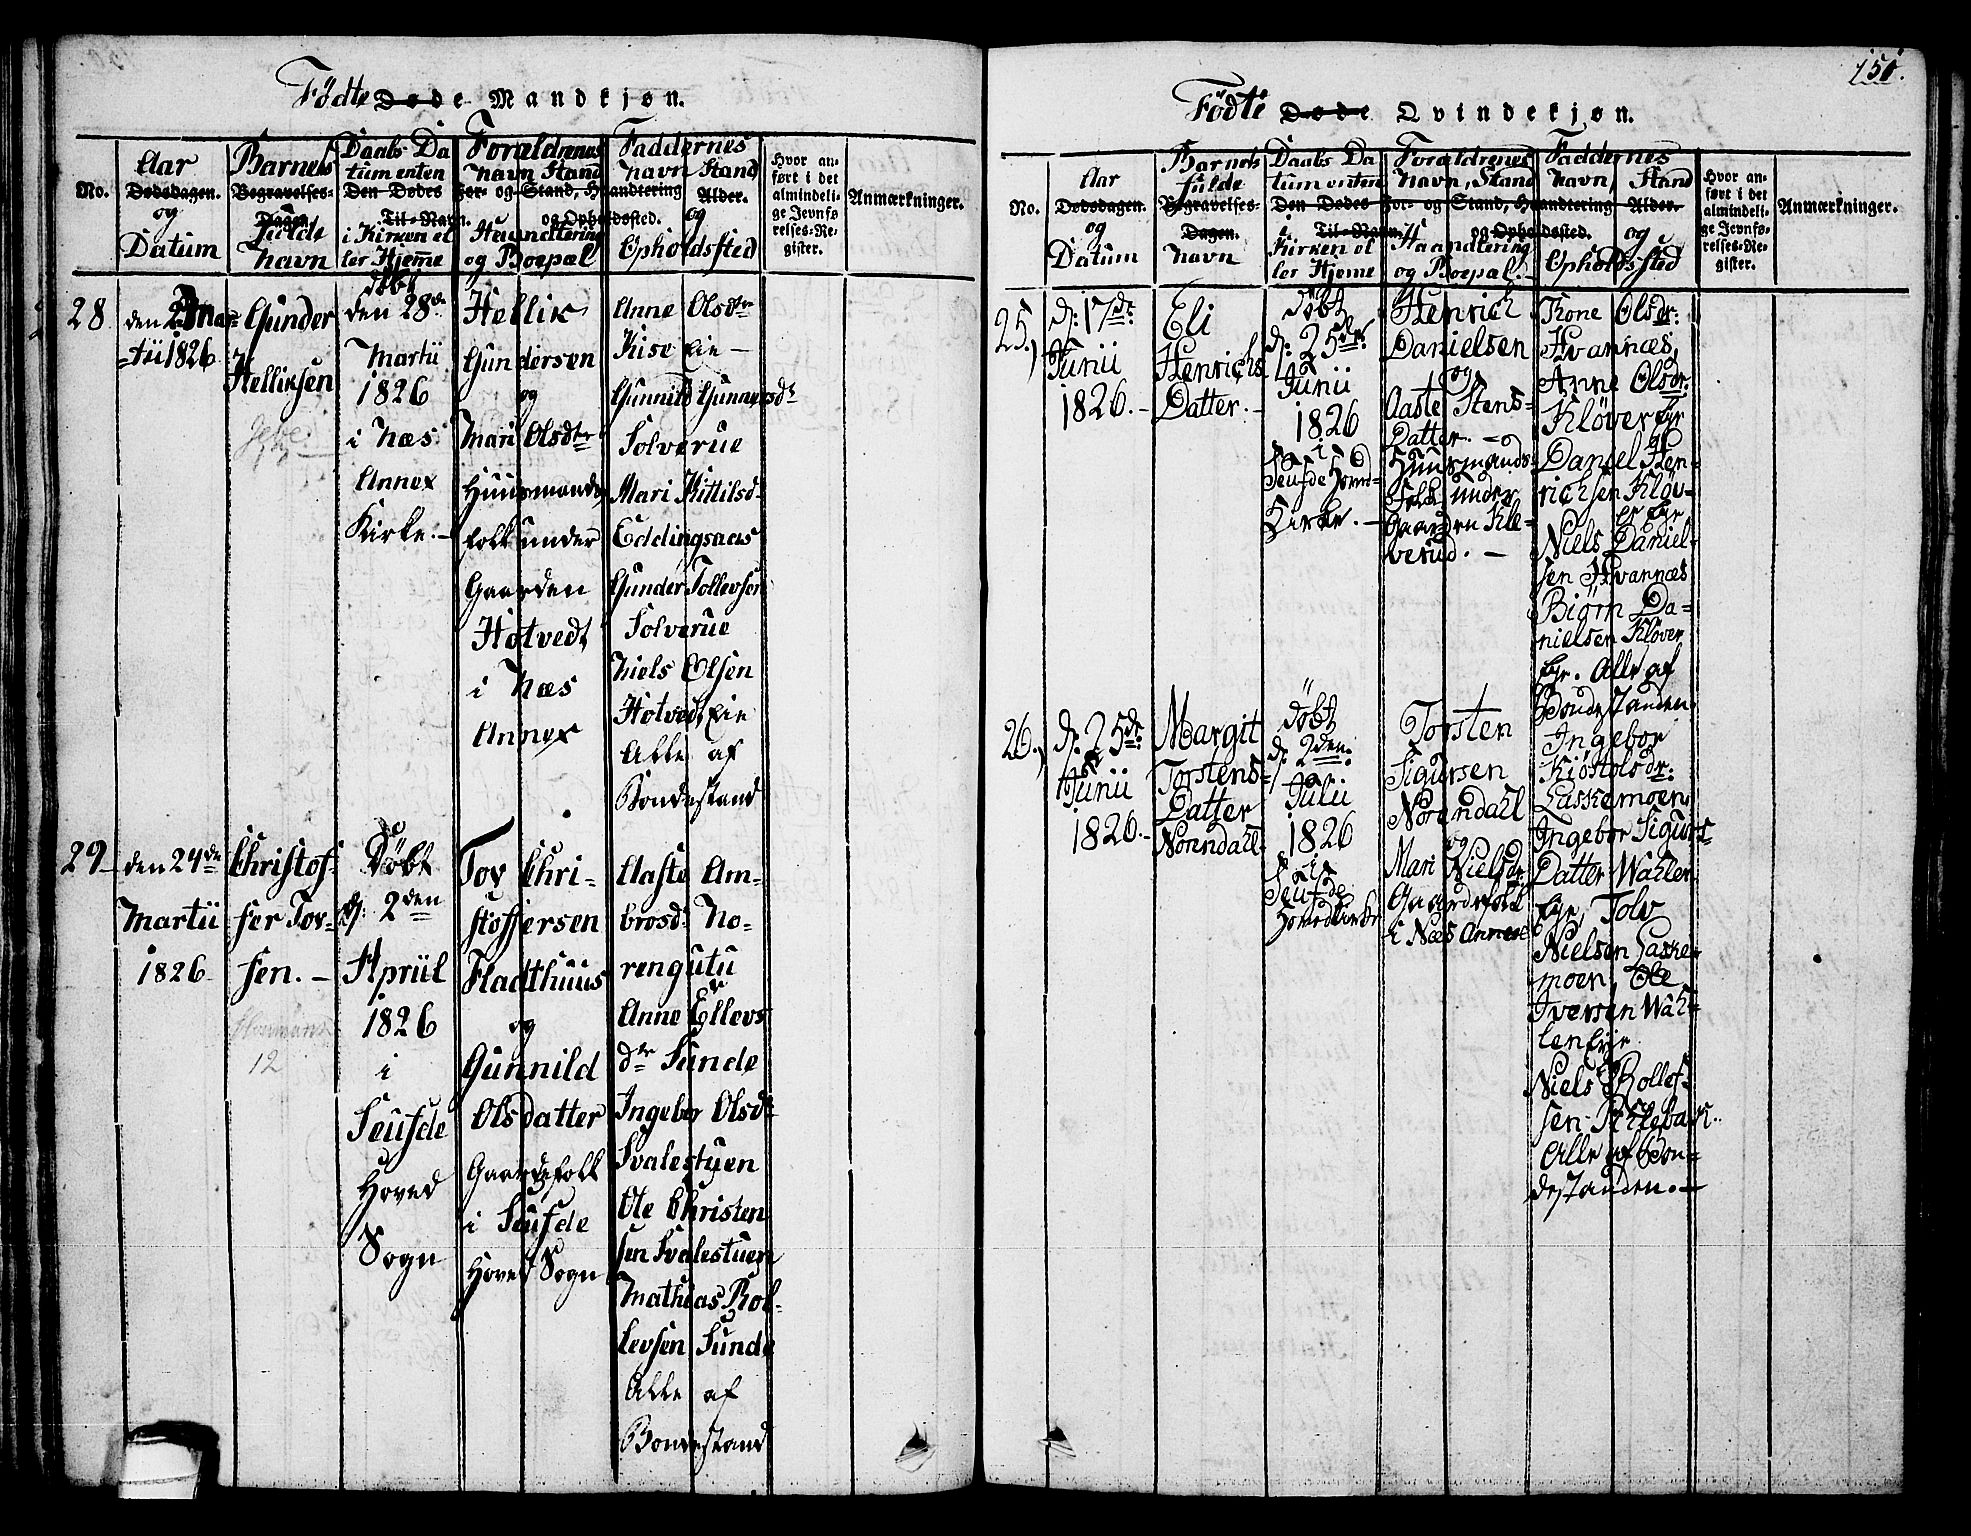 151.
Födte Døde Mandkjøn.
No.
Aar
Dødsdagen.
og
Datum
Barnets
Begravelses-
Dagen.
fulde
Navn
Daabs Da
tum enten
Den Dødes
Til-Navn.
i Kirken el
ler Hjeme
döbt
Forældrenes
Navn Stand
For- og Stand, Haandtering
og Opholdssted.
Haandtering
og Boepæl
Faddernes
Navn Stand
Alder.
og
Opholdssted
Hvor an-
ført i det
almindeli-
ge Jevnfø-
relses-Re-
gister.
Anmærkninger.
28
den Mar-
tii 1826
Gunder
Helliksen
den 28de
Martii
1826
i Næs
Annex
Kirke.-
Hellik
Gundersen
og
Mari Olsdtr
Huusmands
folk under
Gaarden
Hotvedt
i Næs
Annex
Anne Olsdtr
Kise Eie-
Gunnild Gunnersdtr
Solverue
Mari Kittilsd-
Eddingsaas
Gunder Tollevsen
Solverue
Niels Olsen
Hotvedt Eie
Alle af
Bondestand
29
den 24de
Martii
1826
Christof-
fer Tov-
sen.-
12
Döbt
d: 2den
April
1826
i
Seufde
Hoved
Sogn
Tov Chri-
stoffersen
Fladthuus
og
Gunnild
Olsdatter
Gaardefolk
i Seufde
Hoved Sogn
Aaste Am-
brosd: No-
rengutu
Anne Ellevs
dtr Sunde
Ingebor Olsdtr
Svalestuen
Ole Christen
sen Svalestuen
Mathias Rol-
levsen Sunde
Alle af
Bondestand
Födte Døde Qvindekjøn.
No.
Aar
Dødsdagen.
og
Datum
Barnets
fulde
Begravelses-
Dagen.
Navn
Daabs Da
tum enten
Den Dødes
Til-Navn.
i
Kirken el
ler Hjeme
Forældrenes
Navn, Stand
For- og Stand, Haandtering
og Opholdssted.
Haandtering
og Boepæl.
Faddernes
Navn, Stand
Alder.
og
Opholds Sted
Hvor an-
ført i det
almindeli-
ge Jevnfø-
relses-Re-
gister.
Anmærkninger.
25.
d: 17de
Junii
1826.-
Eli
Henrichs
Datter.-
Döbt
d: 25de
Junii
1826
i
Seufde Hoved-
Kirke.-
Henrich
Danielsen
og
Aaste Stens-
Datter.-
Huusmands-
Folk under
Gaarden Klö-
verud.-
Kone Olsdr:
Hvannæs,
Anne Olsdr:
Klöver Eje
Daniel Hen-
richsen Klöv-
er Eje
Niels Daniel-
sen Hvannæs
Biörn Da-
nielsen Klöver
Eje. Alle af
Bondestanden.
26.
d: 25de
Junii
1826.-
Margit
Torstens-
Datter
Norendahl.
Döbt
d: 2den.
Julii
1826
i
Seufde
Hovedkirke
Torsten
Sigursen
Norendahl
og
Mari Nielsdr
Gaardefolk
i Næs Annex
Ingebor
Kiöstolsdr:
Laskemoen,
Ingebor Sigurs
Datter Wahler
Eje, Tolv
Nielsen Laske-
moen, Ole
Iversen Wah-
len Eje
Niels Rollef-
sen Kilebak.
Alle af Bon-
destanden.-